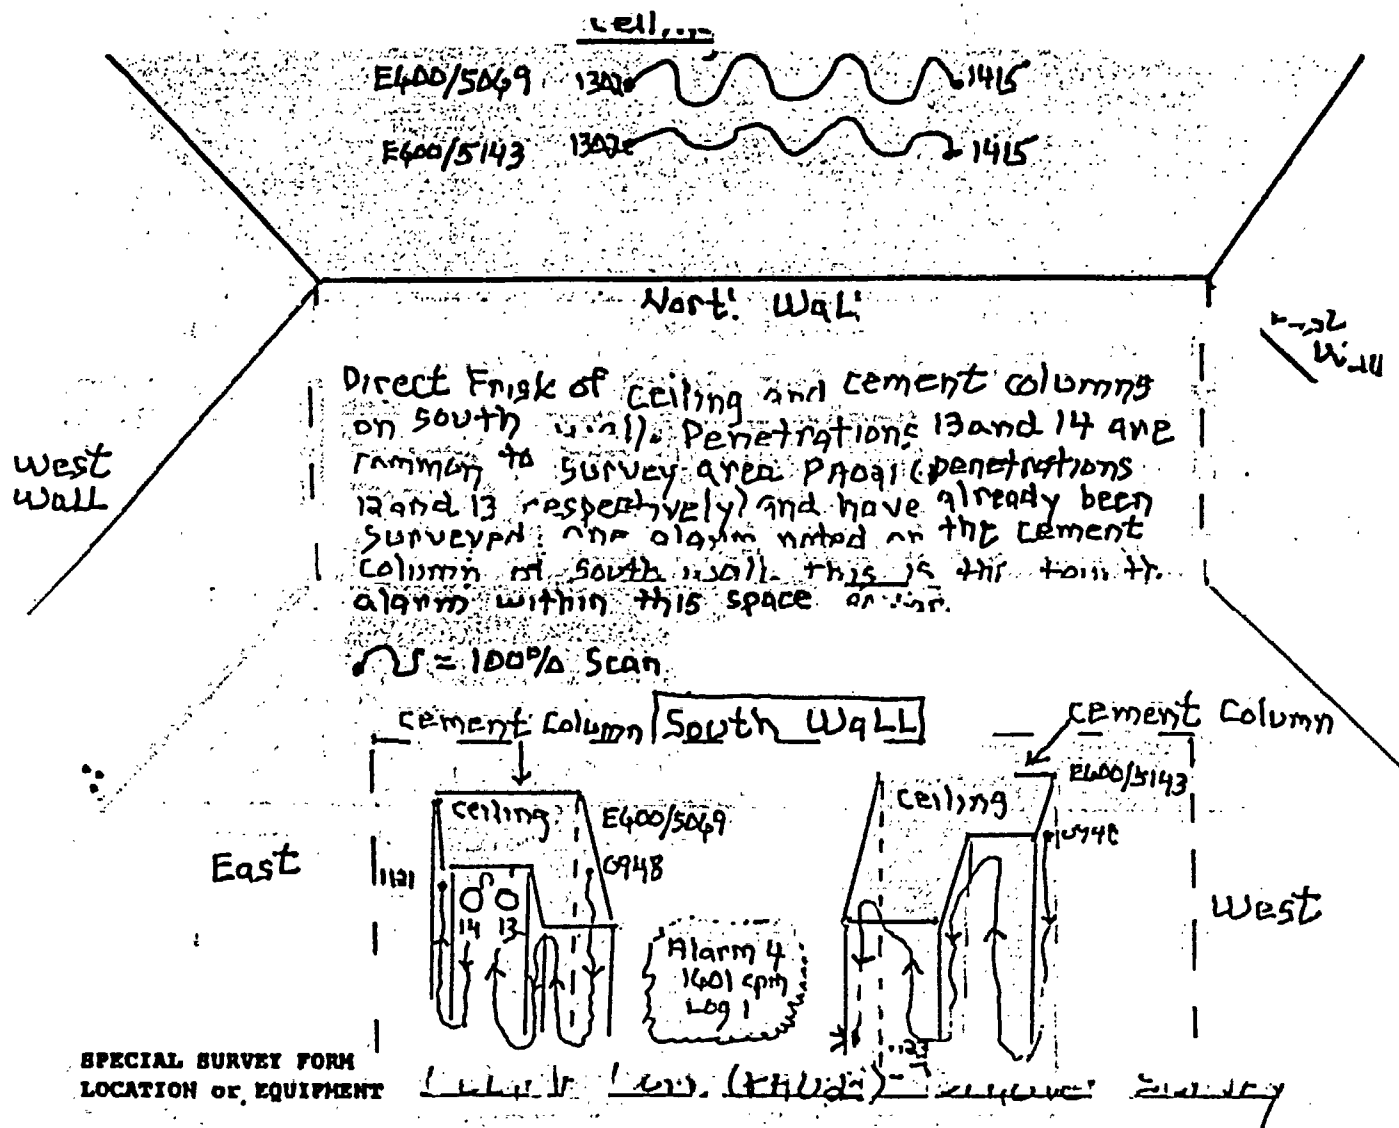 E600/5069 1302 1415
E600/5143 1302 1415
North Wall
Wall
West
Wall
Direct Frisk of ceiling and cement columns
on south wall. Penetrations 13 and 14 are
common to survey area PA021 (penetrations
12 and 13 respectively) and have already been
surveyed. one alarm noted on the cement
column of south wall. this is the fourth
alarm within this space
= 100% Scan
cement Column South Wall cement Column
ceiling E600/5069 ceiling E600/5143
East 1121 0948 West
14 13
Alarm 4
1601 cpm
Log 1
SPECIAL SURVEY FORM
LOCATION or EQUIPMENT